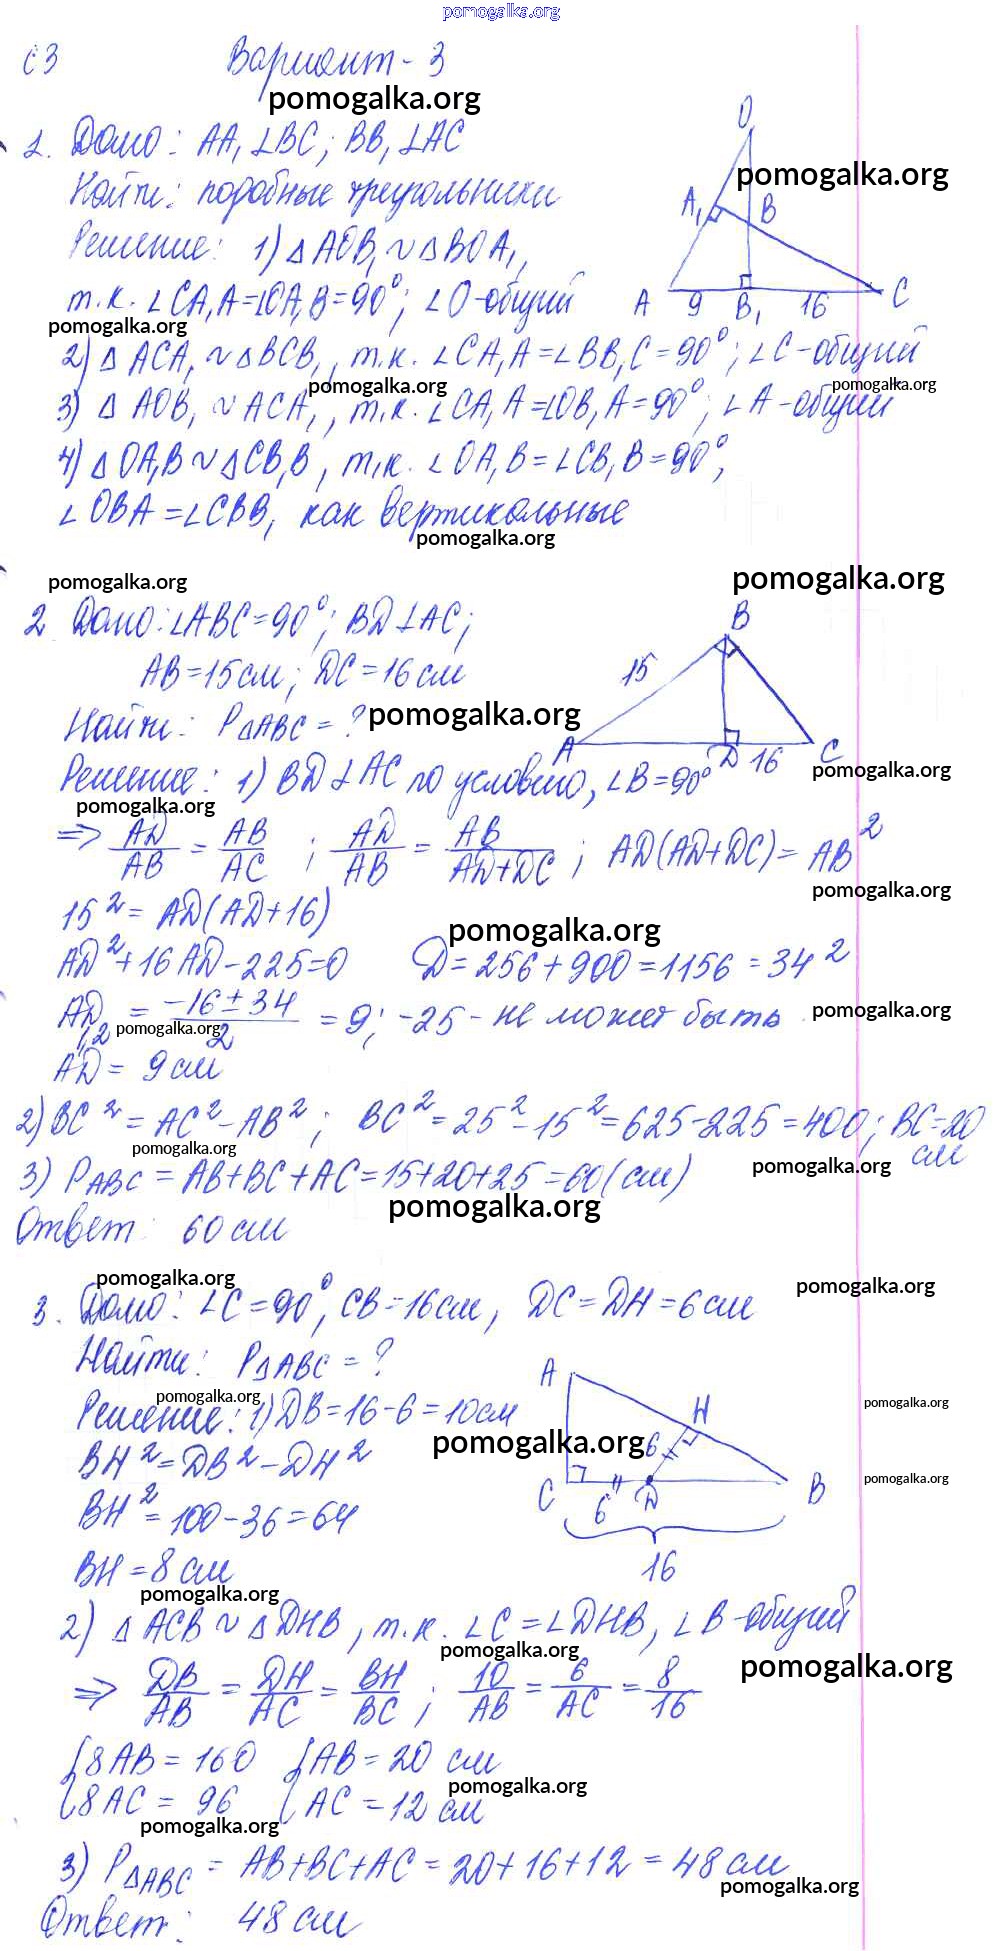 pomogalka.org
С3 Вариант - 3
pomogalka.org
1. Дано: AA₁⊥BC; BB₁⊥AC
Найти: подобные треугольники
Решение: 1) △AOB₁ ~ △BOA₁,
т.к. ∠CA₁A=∠OA₁B=90°; ∠O-общий
O
pomogalka.org
A₁ B
A 9 B₁ 16 C
pomogalka.org
2) △ACA₁ ~ △BCB₁, т.к. ∠CA₁A=∠BB₁C=90°; ∠C-общий
pomogalka.org pomogalka.org
3) △AOB₁ ~ ACA₁, т.к. ∠CA₁A=∠OB₁A=90°; ∠A-общий
4) △OA₁B ~ △CB₁B, т.к. ∠OA₁B=∠CB₁B=90°,
∠OBA=∠CBB₁ как вертикольные
pomogalka.org
pomogalka.org pomogalka.org
2 Дано: ∠ABC=90°; BD⊥AC;
AB=15см; DC=16см
Найти: P△ABC=?
pomogalka.org
B
15
A D 16 C
Решение: 1) BD⊥AC по условию, ∠B=90°
pomogalka.org
pomogalka.org
⇒ AD/AB = AB/AC ; AD/AB = AB/AD+DC ; AD(AD+DC)=AB²
pomogalka.org
15²=AD(AD+16)
pomogalka.org
AD²+16AD-225=0 D=256+900=1156=34²
AD₁,₂ = -16±34/2 = 9; -25 - не может быть
pomogalka.org pomogalka.org
AD=9см
2) BC²=AC²-AB²; BC²=25²-15²=625-225=400; BC=20 см
pomogalka.org pomogalka.org
3) PABC=AB+BC+AC=15+20+25=60(см)
pomogalka.org
Ответ: 60см
pomogalka.org pomogalka.org
3. Дано: ∠C=90°, CB=16см, DC=DH=6см
Найти: P△ABC=?
pomogalka.org
Решение: 1) DB=16-6=10см
BH²=DB²-DH²
pomogalka.org
BH²=100-36=64
BH=8см
A
H
6
C 6 D B
16
pomogalka.org
pomogalka.org
pomogalka.org
2) △ACB ~ △DHB, т.к. ∠C=∠DHB, ∠B-общий
pomogalka.org
⇒ DB/AB = DH/AC = BH/BC ; 10/AB = 6/AC = 8/16
pomogalka.org
{8AB=160 {AB=20 см
8AC=96 AC=12 см
pomogalka.org
pomogalka.org
3) P△ABC=AB+BC+AC=20+16+12=48см
pomogalka.org
Ответ: 48см